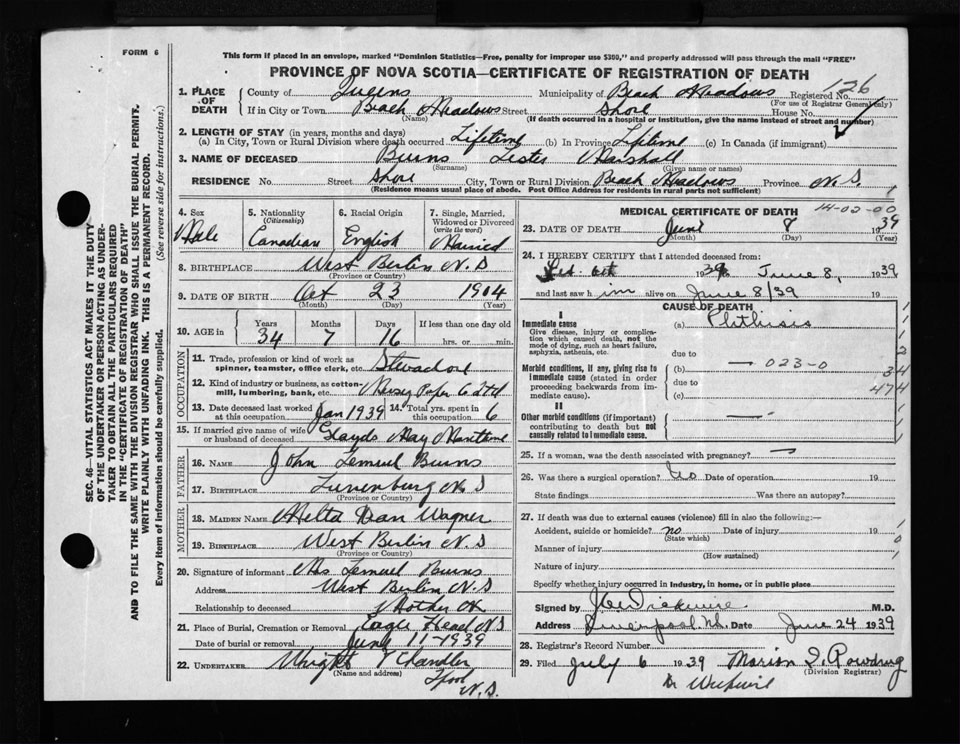 FORM 6
This form if placed in an envelope, marked "Dominion Statistics—Free, penalty for improper use $300," and properly addressed will pass through the mail "FREE"
PROVINCE OF NOVA SCOTIA—CERTIFICATE OF REGISTRATION OF DEATH
126
1. PLACE OF DEATH County of Queens Municipality of Beach Meadows Registered No.
(For use of Registrar General only)
If in City or Town Beach Meadows Street Shore House No.
(Name) (If death occurred in a hospital or institution, give the name instead of street and number)
2. LENGTH OF STAY (in years, months and days)
(a) In City, Town or Rural Division where death occurred Lifetime (b) In Province Lifetime (c) In Canada (if immigrant)
3. NAME OF DECEASED Burns Lester Marshall
(Surname) (Given name or names)
RESIDENCE No. Street Shore City, Town or Rural Division Beach Meadows Province N.S.
(Residence means usual place of abode. Post Office Address for residents in rural parts not sufficient)
SEC. 46—VITAL STATISTICS ACT MAKES IT THE DUTY
OF THE UNDERTAKER OR PERSON ACTING AS UNDER-
TAKER TO OBTAIN ALL THE PARTICULARS REQUIRED
IN THE "CERTIFICATE OF REGISTRATION OF DEATH"
AND TO FILE THE SAME WITH THE DIVISION REGISTRAR WHO SHALL ISSUE THE BURIAL PERMIT.
WRITE PLAINLY WITH UNFADING INK. THIS IS A PERMANENT RECORD.
Every item of information should be carefully supplied. (See reverse side for instructions.)
4. Sex 5. Nationality (Citizenship) 6. Racial Origin 7. Single, Married, Widowed or Divorced (write the word)
Male Canadian English Married
8. BIRTHPLACE West Berlin N.S
(Province or Country)
9. DATE OF BIRTH Oct 23 1904
(Month) (Day) (Year)
10. AGE in Years Months Days If less than one day old
34 7 16 hrs. or min.
OCCUPATION
11. Trade, profession or kind of work as spinner, teamster, office clerk, etc.
12. Kind of industry or business, as cotton-mill, lumbering, bank, etc. Mersey Paper Co Ltd
13. Date deceased last worked at this occupation Jan 1939 14. Total yrs. spent in this occupation 6
15. If married give name of wife or husband of deceased Glayds May
FATHER
16. NAME John Lemuel Burns
17. BIRTHPLACE Lunenburg N.S
(Province or Country)
MOTHER
18. MAIDEN NAME Wagner
19. BIRTHPLACE West Berlin N.S
(Province or Country)
20. Signature of informant Mrs Lemuel Burns
Address West Berlin N.S
Relationship to deceased Mother OK
21. Place of Burial, Cremation or Removal Eagle Head N.S
Date of burial or removal June 11-1939
22. UNDERTAKER Wright Chandler
(Name and address)
Lpool
N.S.
MEDICAL CERTIFICATE OF DEATH 14-02-00
23. DATE OF DEATH June 8 1939
(Month) (Day) (Year)
24. I HEREBY CERTIFY that I attended deceased from:
Feb. 6th 1939 to June 8, 1939
and last saw him alive on June 8/39 19
CAUSE OF DEATH
I
Immediate cause
Give disease, injury or complication which caused death, not the mode of dying, such as heart failure, asphyxia, asthenia, etc.
(a) Phthisis
due to
Morbid conditions, if any, giving rise to immediate cause (stated in order proceeding backwards from immediate cause).
(b) — 023-0
due to
(c)
II
Other morbid conditions (if important) contributing to death but not causally related to immediate cause.
1
1
2
34
474
25. If a woman, was the death associated with pregnancy? —
26. Was there a surgical operation? No Date of operation 19
State findings Was there an autopsy?
27. If death was due to external causes (violence) fill in also the following:—
Accident, suicide or homicide? no Date of injury 19
(State which)
Manner of injury
(How sustained)
Nature of injury
Specify whether injury occurred in industry, in home, or in public place
1
0
1
Signed by M.D.
Address Liverpool N.S. Date June 24 1939
28. Registrar's Record Number
29. Filed July 6 1939 Marion
(Division Registrar)
Dr